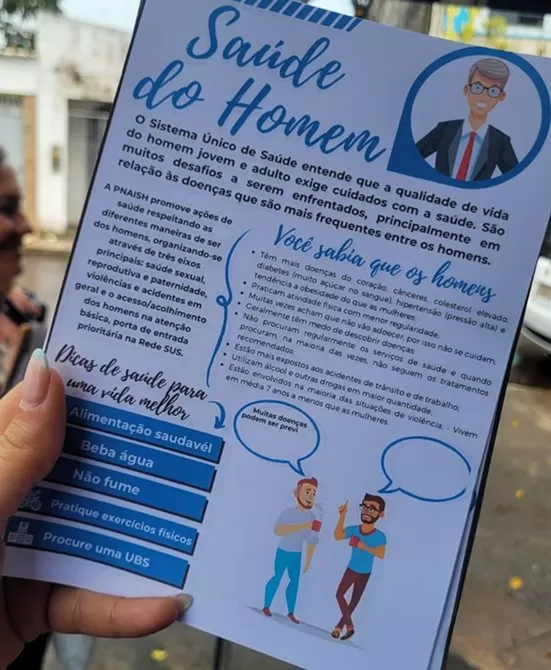 Saúde
do Homem
O Sistema Único de Saúde entende que a qualidade de vida
do homem jovem e adulto exige cuidados com a saúde. São
muitos desafios a serem enfrentados, principalmente em
relação às doenças que são mais frequentes entre os homens.
A PNAISH promove ações de
saúde respeitando as
diferentes maneiras de ser
dos homens, organizando-se
através de três eixos
principais: saúde sexual,
reprodutiva e paternidade,
violências e acidentes em
geral e o acesso/acolhimento
dos homens na atenção
básica, porta de entrada
prioritária na Rede SUS.
Você sabia que os homens
• Têm mais doenças do coração, cânceres, colesterol elevado,
diabetes (muito açúcar no sangue), hipertensão (pressão alta) e
tendência a obesidade do que as mulheres;
• Praticam atividade física com menor regularidade;
• Muitas vezes acham que não vão adoecer, por isso não se cuidam.
• Geralmente têm medo de descobrir doenças;
• Não procuram regularmente os serviços de saúde e quando
procuram, na maioria das vezes, não seguem os tratamentos
recomendados.
• Estão mais expostos aos acidentes de trânsito e de trabalho;
• Utilizam álcool e outras drogas em maior quantidade.
• Estão envolvidos na maioria das situações de violência; - Vivem
em média 7 anos a menos que as mulheres.
Dicas de saúde para
uma vida melhor
Alimentação saudavél
Beba água
Não fume
Pratique exercícios físicos
Procure uma UBS
Muitas doenças
podem ser previ